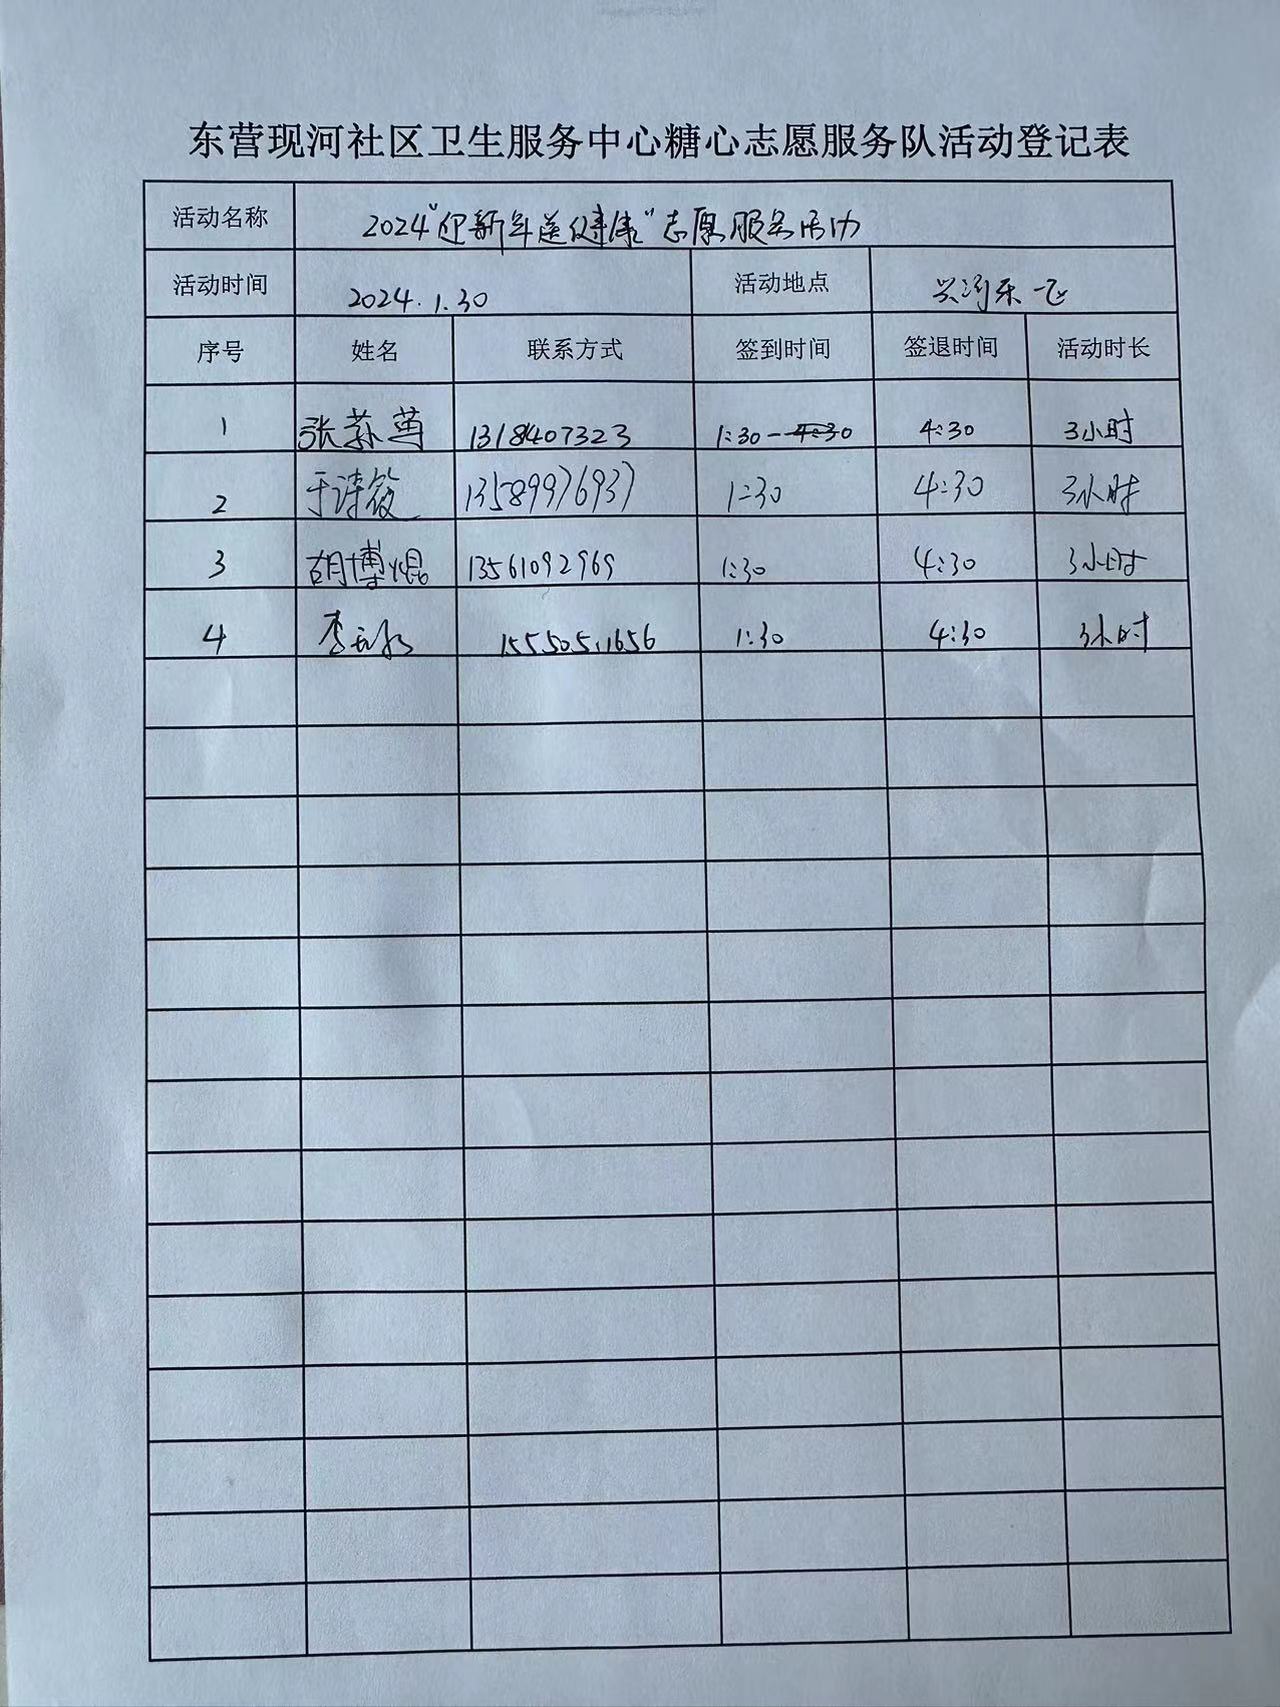 东营现河社区卫生服务中心糖心志愿服务队活动登记表
活动名称 2024"迎新年送健康"志愿服务活动
活动时间 2024.1.30 活动地点
序号 姓名 联系方式 签到时间 签退时间 活动时长
1 张荞蕚 1318407323 1:30 4:30 3小时
2 于诗筱 13589976937 1:30 4:30 3小时
3 胡博焜 13561092969 1:30 4:30 3小时
4 15550511656 1:30 4:30 3小时